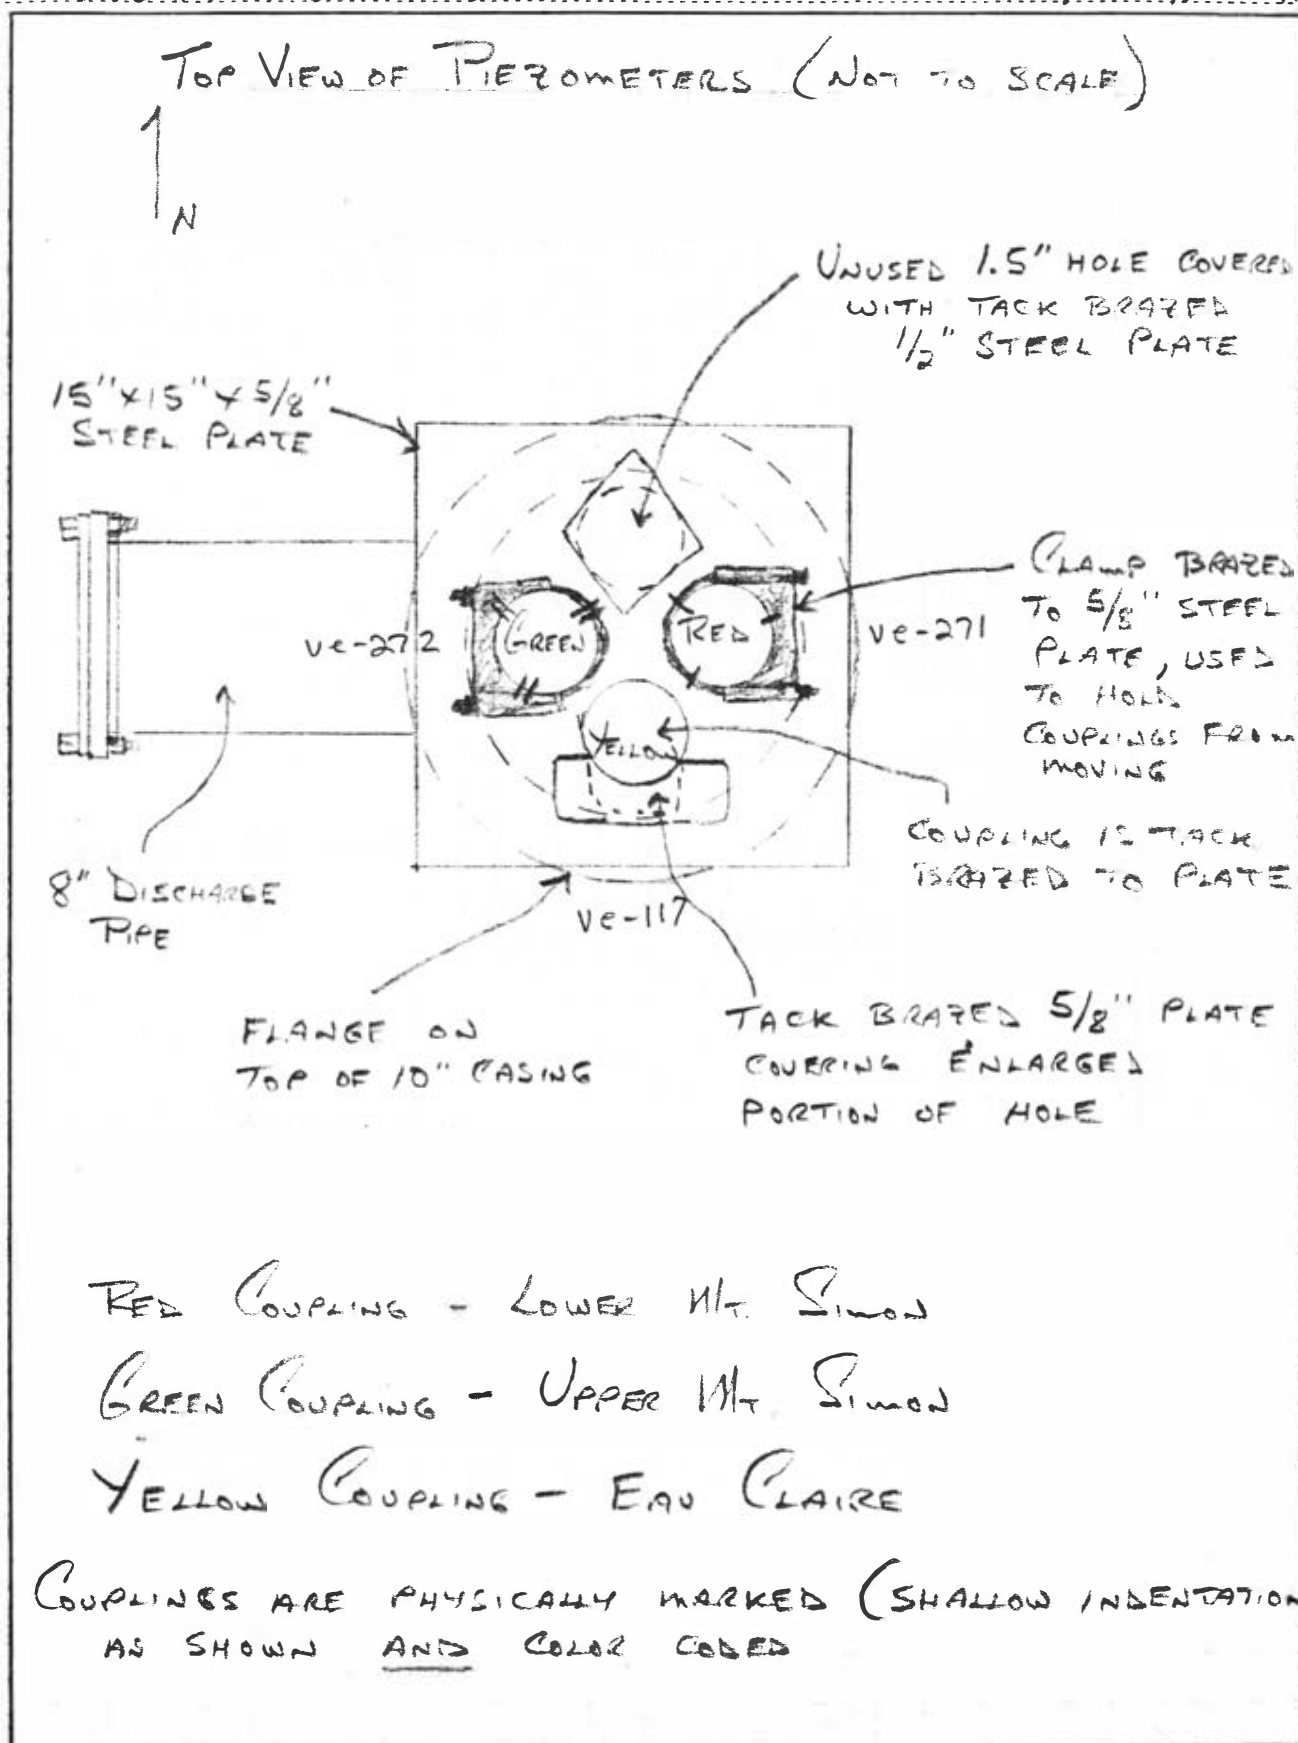 TOP VIEW OF PIEZOMETERS (NOT TO SCALE)
N
UNUSED 1.5" HOLE COVERED
WITH TACK BRAZED
1/2" STEEL PLATE
15" x 15" x 5/8"
STEEL PLATE
CLAMP BRAZED
TO 5/8" STEEL
PLATE, USED
TO HOLD
COUPLINGS FROM
MOVING
ve-272
GREEN
RED
ve-271
YELLOW
COUPLING IS TACK
BRAZED TO PLATE
8" DISCHARGE
PIPE
ve-117
FLANGE ON
TOP OF 10" CASING
TACK BRAZED 5/8" PLATE
COVERING ENLARGED
PORTION OF HOLE
RED COUPLING - LOWER MT. SIMON
GREEN COUPLING - UPPER MT SIMON
YELLOW COUPLING - EAU CLAIRE
COUPLINGS ARE PHYSICALLY MARKED (SHALLOW INDENTATION
AS SHOWN AND COLOR CODED